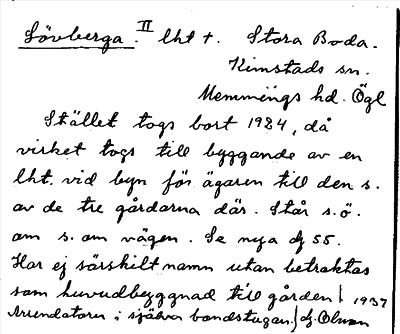 Lövberga. II lht t. Stora Boda.
Kimstads sn.
Memmings hd. Ögl
Stället togs bort 1924, då
virket togs till byggande av en
lht. vid byn för ägaren till den s.
av de tre gårdarna där. Står s.ö.
om s. om vägen. Se nya dg 55.
Har ej särskilt namn utan betraktas
som huvudbyggnad till gården | 1937
Arrendatorn i själva bondstugan. | dg. Olsson